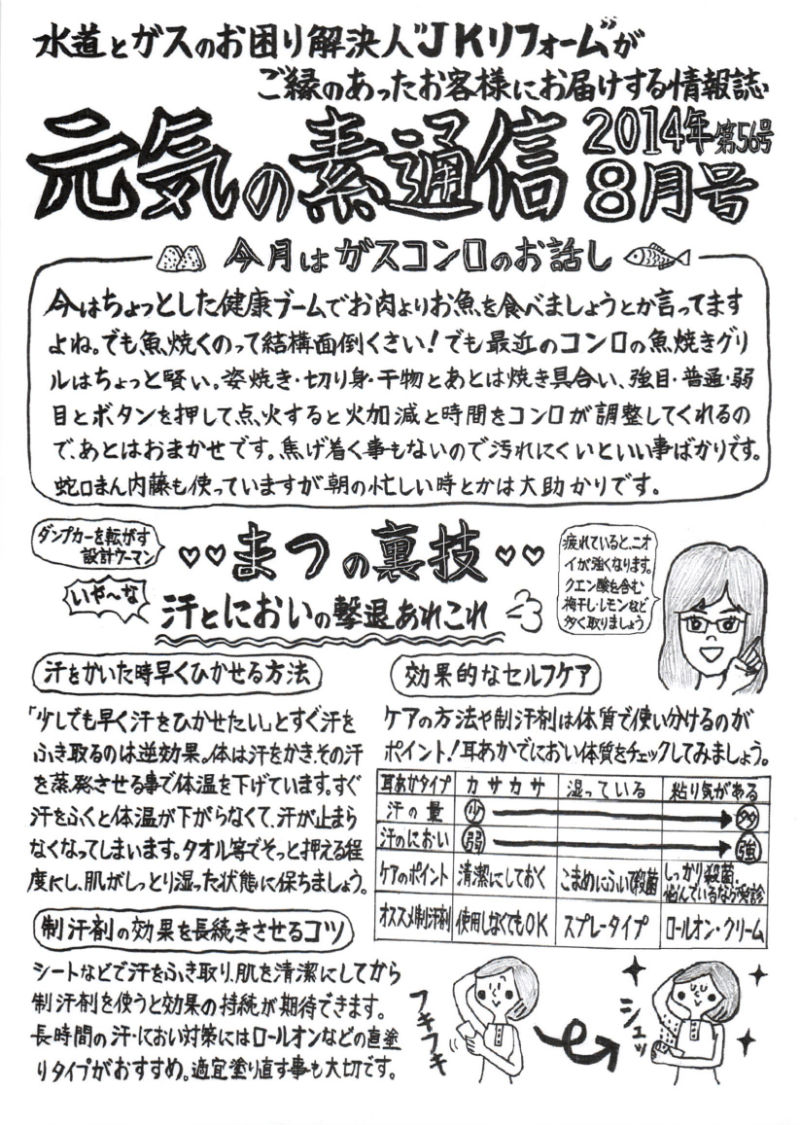 水道とガスのお困り解決人"JKリフォーム"が
ご縁のあったお客様にお届けする情報誌
元気の素通信 2014年 第56号
8月号
今月はガスコンロのお話し
今はちょっとした健康ブームでお肉よりお魚を食べましょうとか言ってます
よね。でも魚焼くのって結構面倒くさい!でも最近のコンロの魚焼きグリ
ルはちょっと賢い。姿焼き・切り身・干物とあとは焼き具合い、強目・普通・弱
目とボタンを押して点火すると火加減と時間をコンロが調整してくれるの
で、あとはおまかせです。焦げ着く事もないので汚れにくいといい事ばかりです。
蛇口まん内藤も使っていますが朝の忙しい時とかは大助かりです。
ダンプカーを転がす
設計ウーマン
♡♡まつの裏技♡♡
いや〜な
汗とにおいの撃退あれこれ
疲れていると、ニオ
イが強くなります。
クエン酸を含む
梅干し・レモンなど
多く取りましょう
汗をかいた時早くひかせる方法
「少しでも早く汗をひかせたい」とすぐ汗を
ふき取るのは逆効果。体は汗をかき、その汗
を蒸発させる事で体温を下げています。すぐ
汗をふくと体温が下がらなくて、汗が止まら
なくなってしまいます。タオル等でそっと押える程
度にし、肌がしっとり湿った状態に保ちましょう。
制汗剤の効果を長続きさせるコツ
シートなどで汗をふき取り、肌を清潔にしてから
制汗剤を使うと効果の持続が期待できます。
長時間の汗・におい対策にはロールオンなどの直塗
りタイプがおすすめ。適宜塗り直す事も大切です。
効果的なセルフケア
ケアの方法や制汗剤は体質で使い分けるのが
ポイント!耳あかでにおい体質をチェックしてみましょう。
耳あかタイプ カサカサ 湿っている 粘り気がある
汗の量 少 多
汗のにおい 弱 強
ケアのポイント 清潔にしておく こまめにふいて殺菌 しっかり殺菌。
悩んでいるなら受診
オススメ制汗剤 使用しなくてもOK スプレータイプ ロールオン・クリーム
フキフキ
シュッ